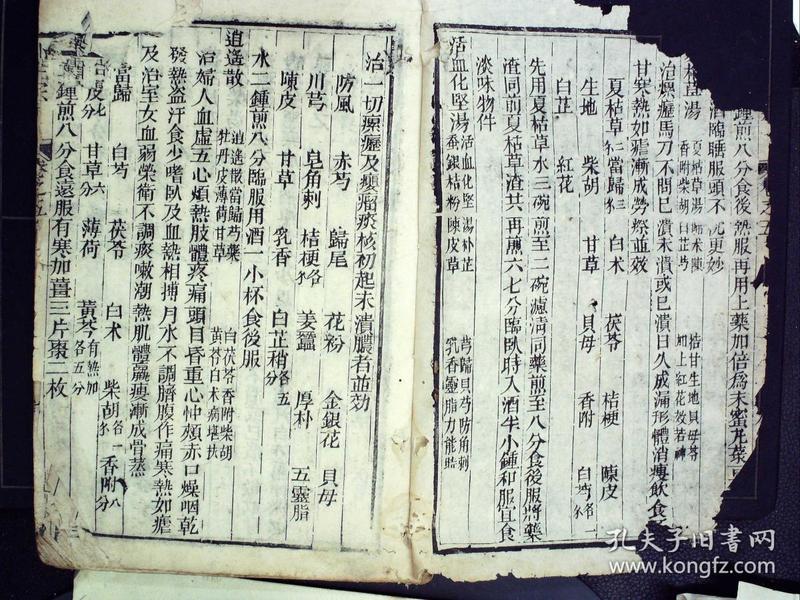 鍾煎八分食後熱服再用上藥加倍為末蜜丸菉
酒臨睡服頭不
枕更妙
枯草湯
夏枯草湯歸朮陳
香附柴胡白芷芍
桔甘生地貝母苓
加上紅花效若神
治瘰癧馬刀不問已潰未潰或已潰日久成漏形體消瘦飲食
甘寒熱如瘧漸成勞瘵並效
夏枯草 當歸三 白朮 茯苓 桔梗 陳皮
生地 柴胡 甘草 貝母 香附 白芍各一
白芷 紅花
先用夏枯草水三碗煎至二碗濾清同藥煎至八分食後服將藥
渣同前夏枯草渣共再煎六七分臨臥時入酒半小鍾和服宜食
淡味物件
活血化堅湯
活血化堅湯補芷
蠶銀桔粉陳皮草
芎歸貝芍防角刺
乳香靈脂力能啚
治一切瘰癧及癭瘤痰核初起未潰膿者並効
防風 赤芍 歸尾 花粉 金銀花 貝母
川芎 皂角刺 桔梗各 姜蠶 厚朴 五靈脂
陳皮 甘草 乳香 白芷稍各五
水二鍾煎八分臨服用酒一小杯食後服
逍遙散
逍遙散當歸芍藥
牡丹皮薄荷甘草
白茯苓香附柴胡
黃苓白朮病堪扶
治婦人血虛五心煩熱肢體疼痛頭目昏重心忡頰赤口燥咽乾
發熱盜汗食少嗜臥及血熱相搏月水不調臍腹作痛寒熱如瘧
及治室女血弱榮衛不調痰嗽潮熱肌體羸瘦漸成骨蒸
當歸 白芍 茯苓 白朮 柴胡各一 香附八分
皮七分 甘草六分 薄荷 黃芩有熱加各五分
鍾煎八分食遠服有寒加薑三片棗二枚
孔夫子旧書网
www.kongfz.com